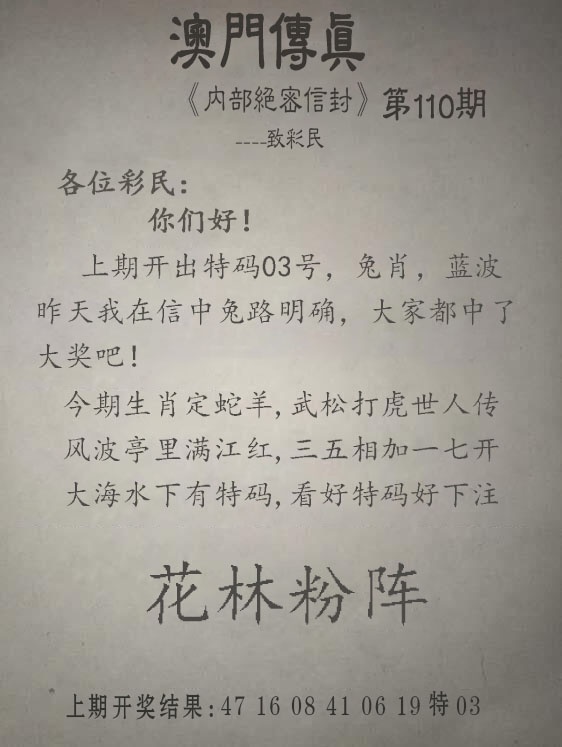 澳門傳眞
《内部絕密信封》第110期
----致彩民
各位彩民：
你们好！
上期开出特码03号，兔肖，蓝波
昨天我在信中兔路明确，大家都中了
大奖吧！
今期生肖定蛇羊,武松打虎世人传
风波亭里满江红,三五相加一七开
大海水下有特码,看好特码好下注
花林粉阵
上期开奖结果:47 16 08 41 06 19 特 03